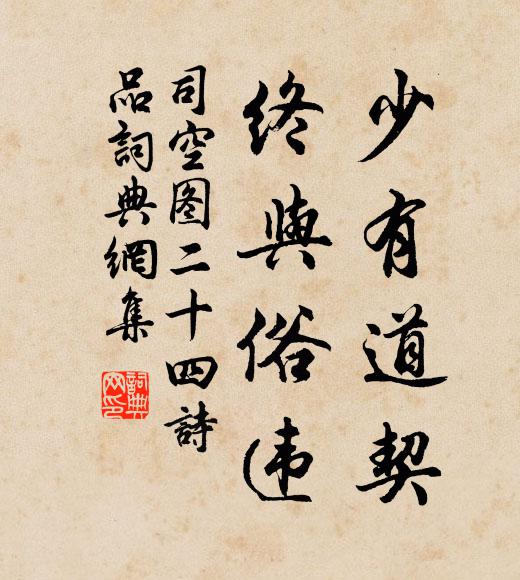 少有道契
終與俗违
司空图二十四詩
品詞典網集
詞典
网印